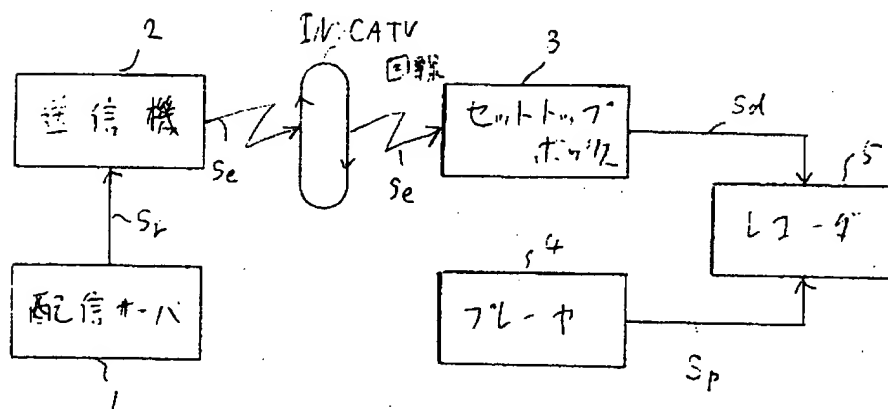 2
IN:CATV
回線
3
送信機
セットトップ
ボックス
Sd
5
Se
Se
レコーダ
Sr
4
配信サーバ
プレーヤ
Sp
1